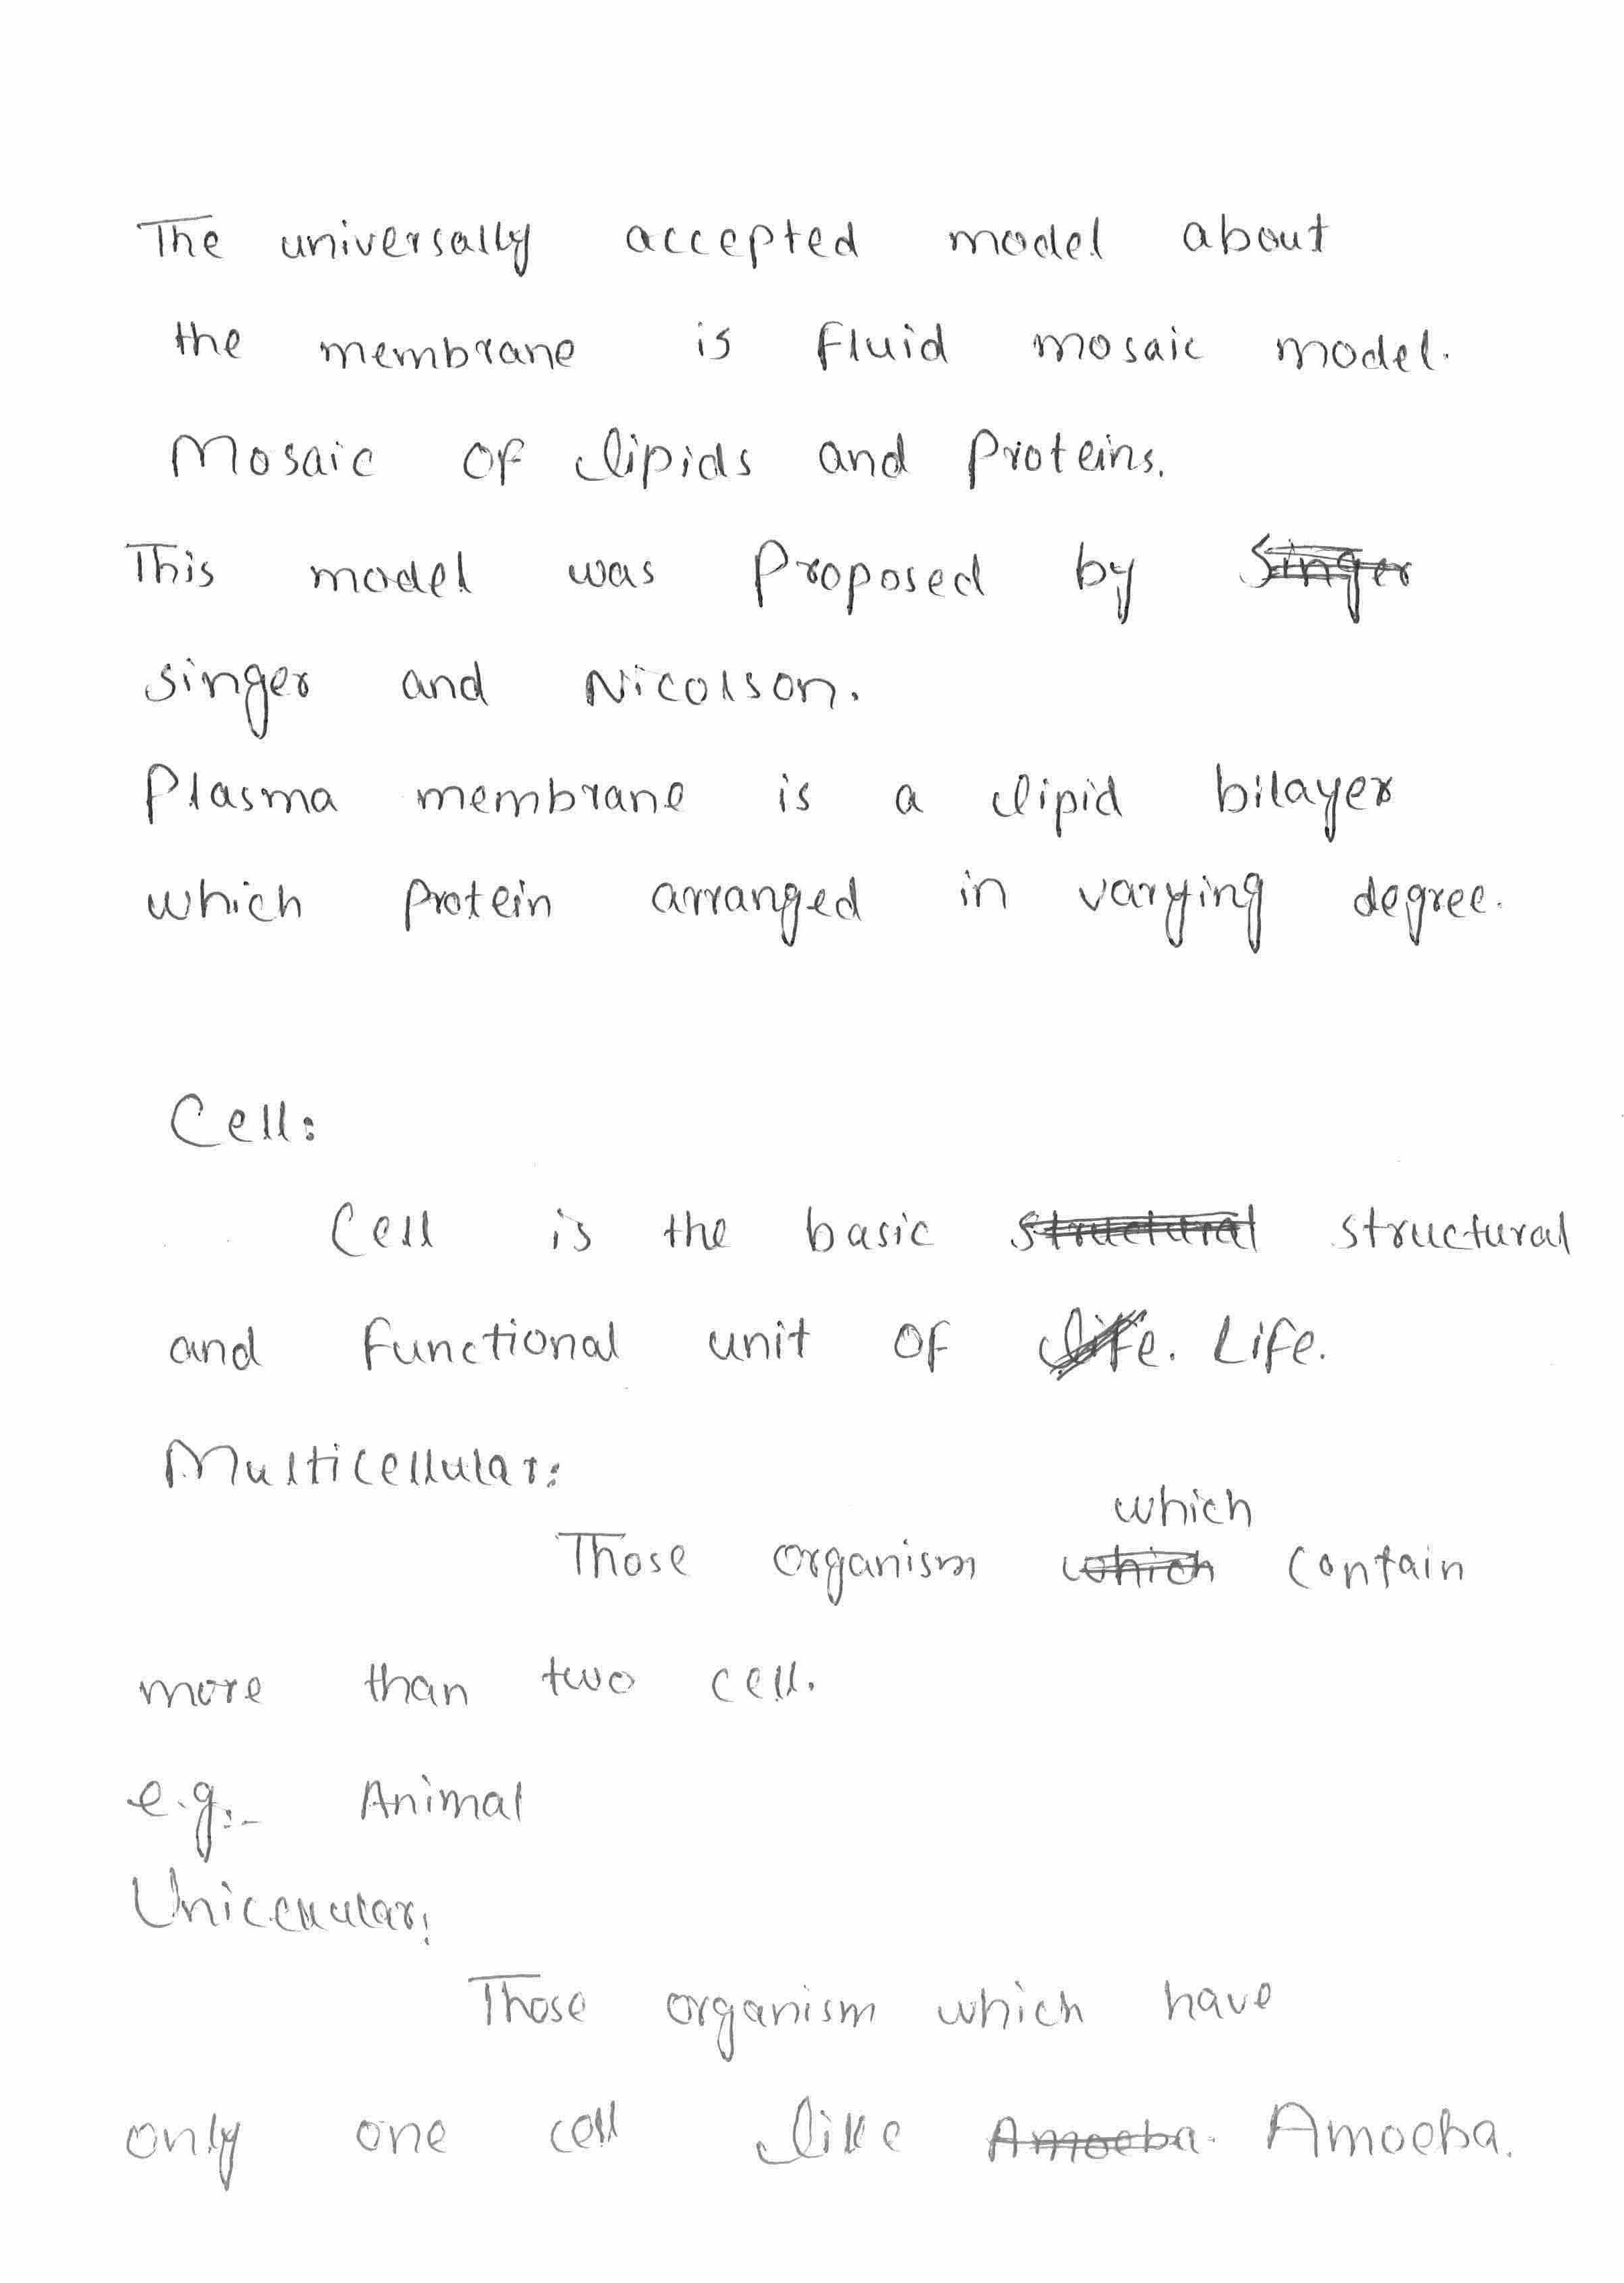 The universally accepted model about
the membrane is fluid mosaic model.
Mosaic of lipids and Proteins.
This model was Proposed by Singer
singer and Nicolson.
Plasma membrane is a lipid bilayer
which Protein arranged in varying degree.
Cell:
Cell is the basic structural structural
and functional unit of life. Life.
Multicellular:
which
Those organism which contain
more than two cell.
e.g:- Animal
Unicellular:
Those organism which have
only one cell like Amoeba. Amoeba.